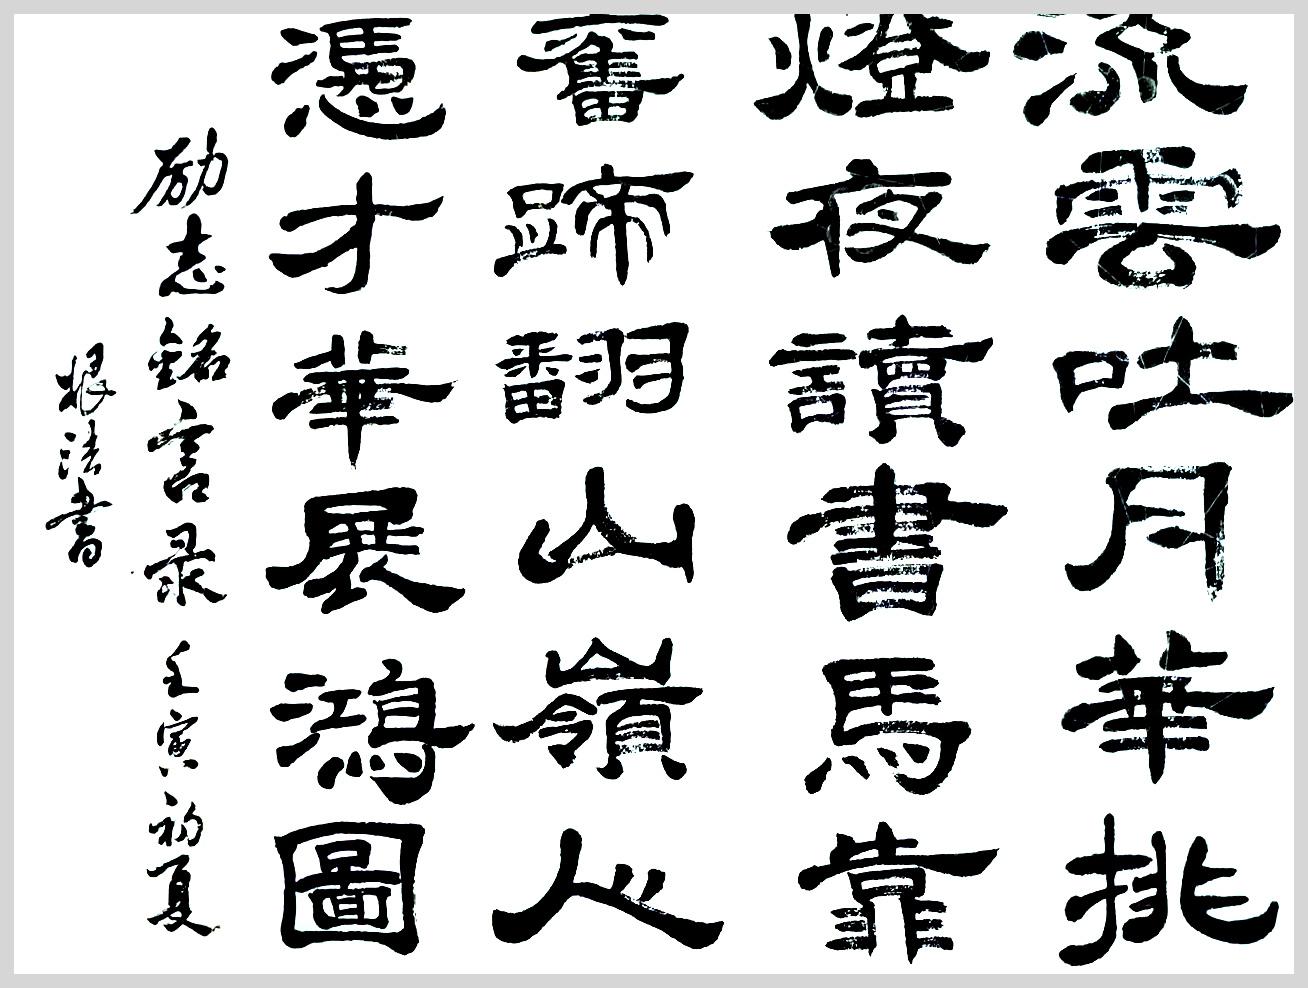 流雲吐月華挑
燈夜讀書馬靠
奮蹄翻山嶺人
憑才華展鴻圖
励志銘言录 壬寅初夏
根法書